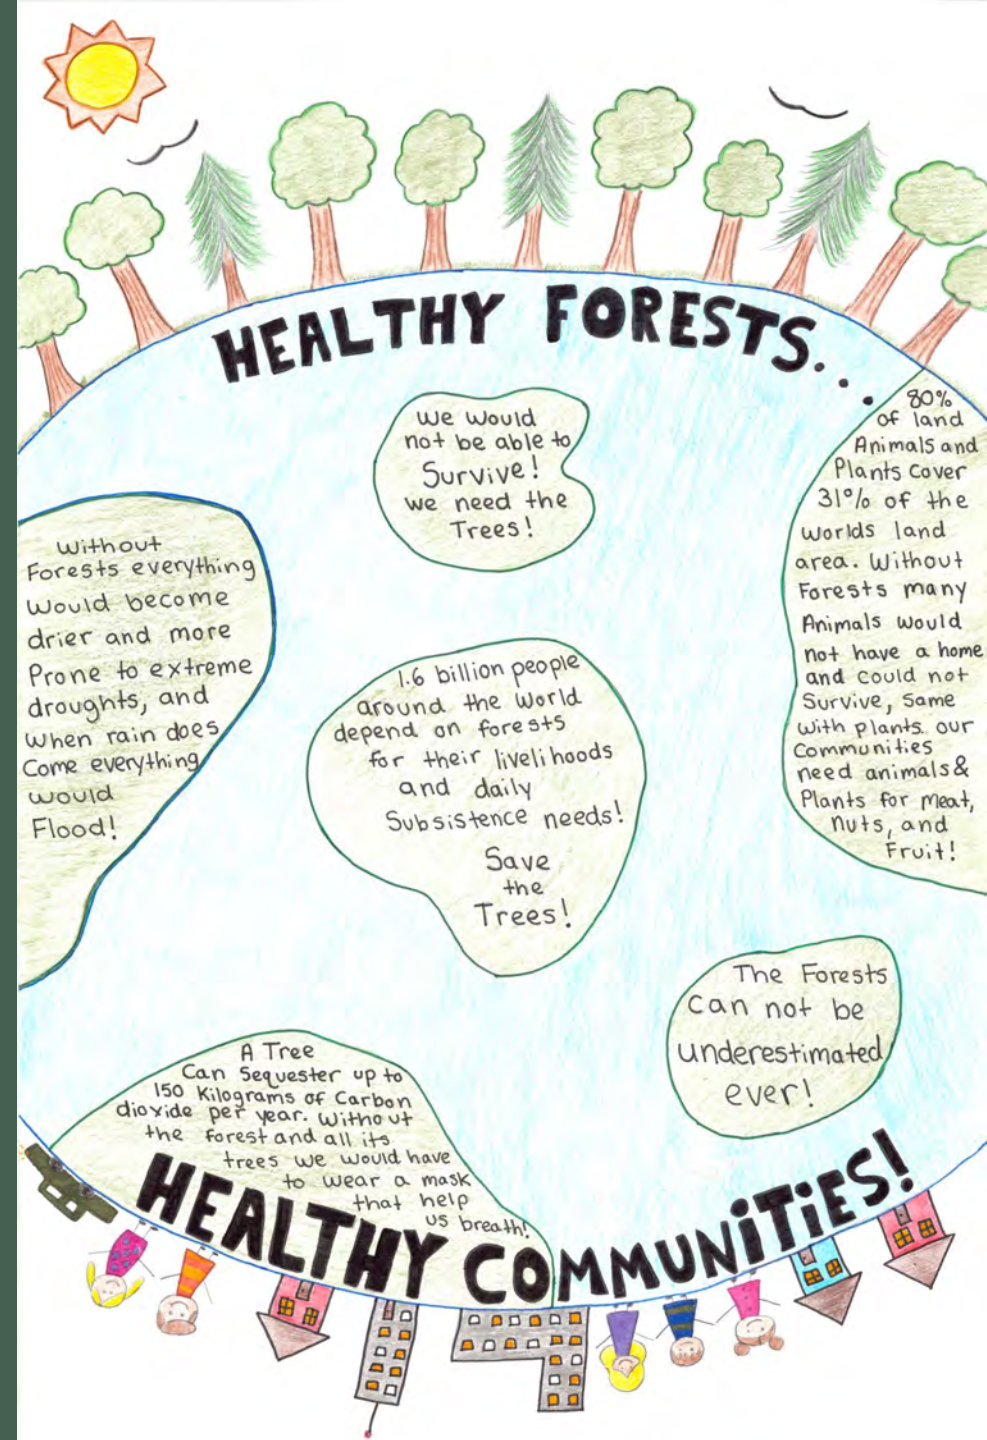 HEALTHY FORESTS...
We would
not be able to
Survive!
we need the
Trees!
80%
of land
Animals and
Plants Cover
31% of the
Worlds land
area. Without
Forests many
Animals would
not have a home
and could not
Survive, Same
with plants. our
Communities
need animals &
Plants for meat,
nuts, and
Fruit!
Without
Forests everything
Would become
drier and more
Prone to extreme
droughts, and
when rain does
Come everything
would
Flood!
1.6 billion people
around the world
depend on forests
for their livelihoods
and daily
Subsistence needs!
Save
the
Trees!
The Forests
can not be
underestimated
ever!
A Tree
Can Sequester up to
150 Kilograms of Carbon
dioxide per year. Without
the forest and all its
trees we would have
to wear a mask
that help
us breath!
HEALTHY COMMUNiTiES!